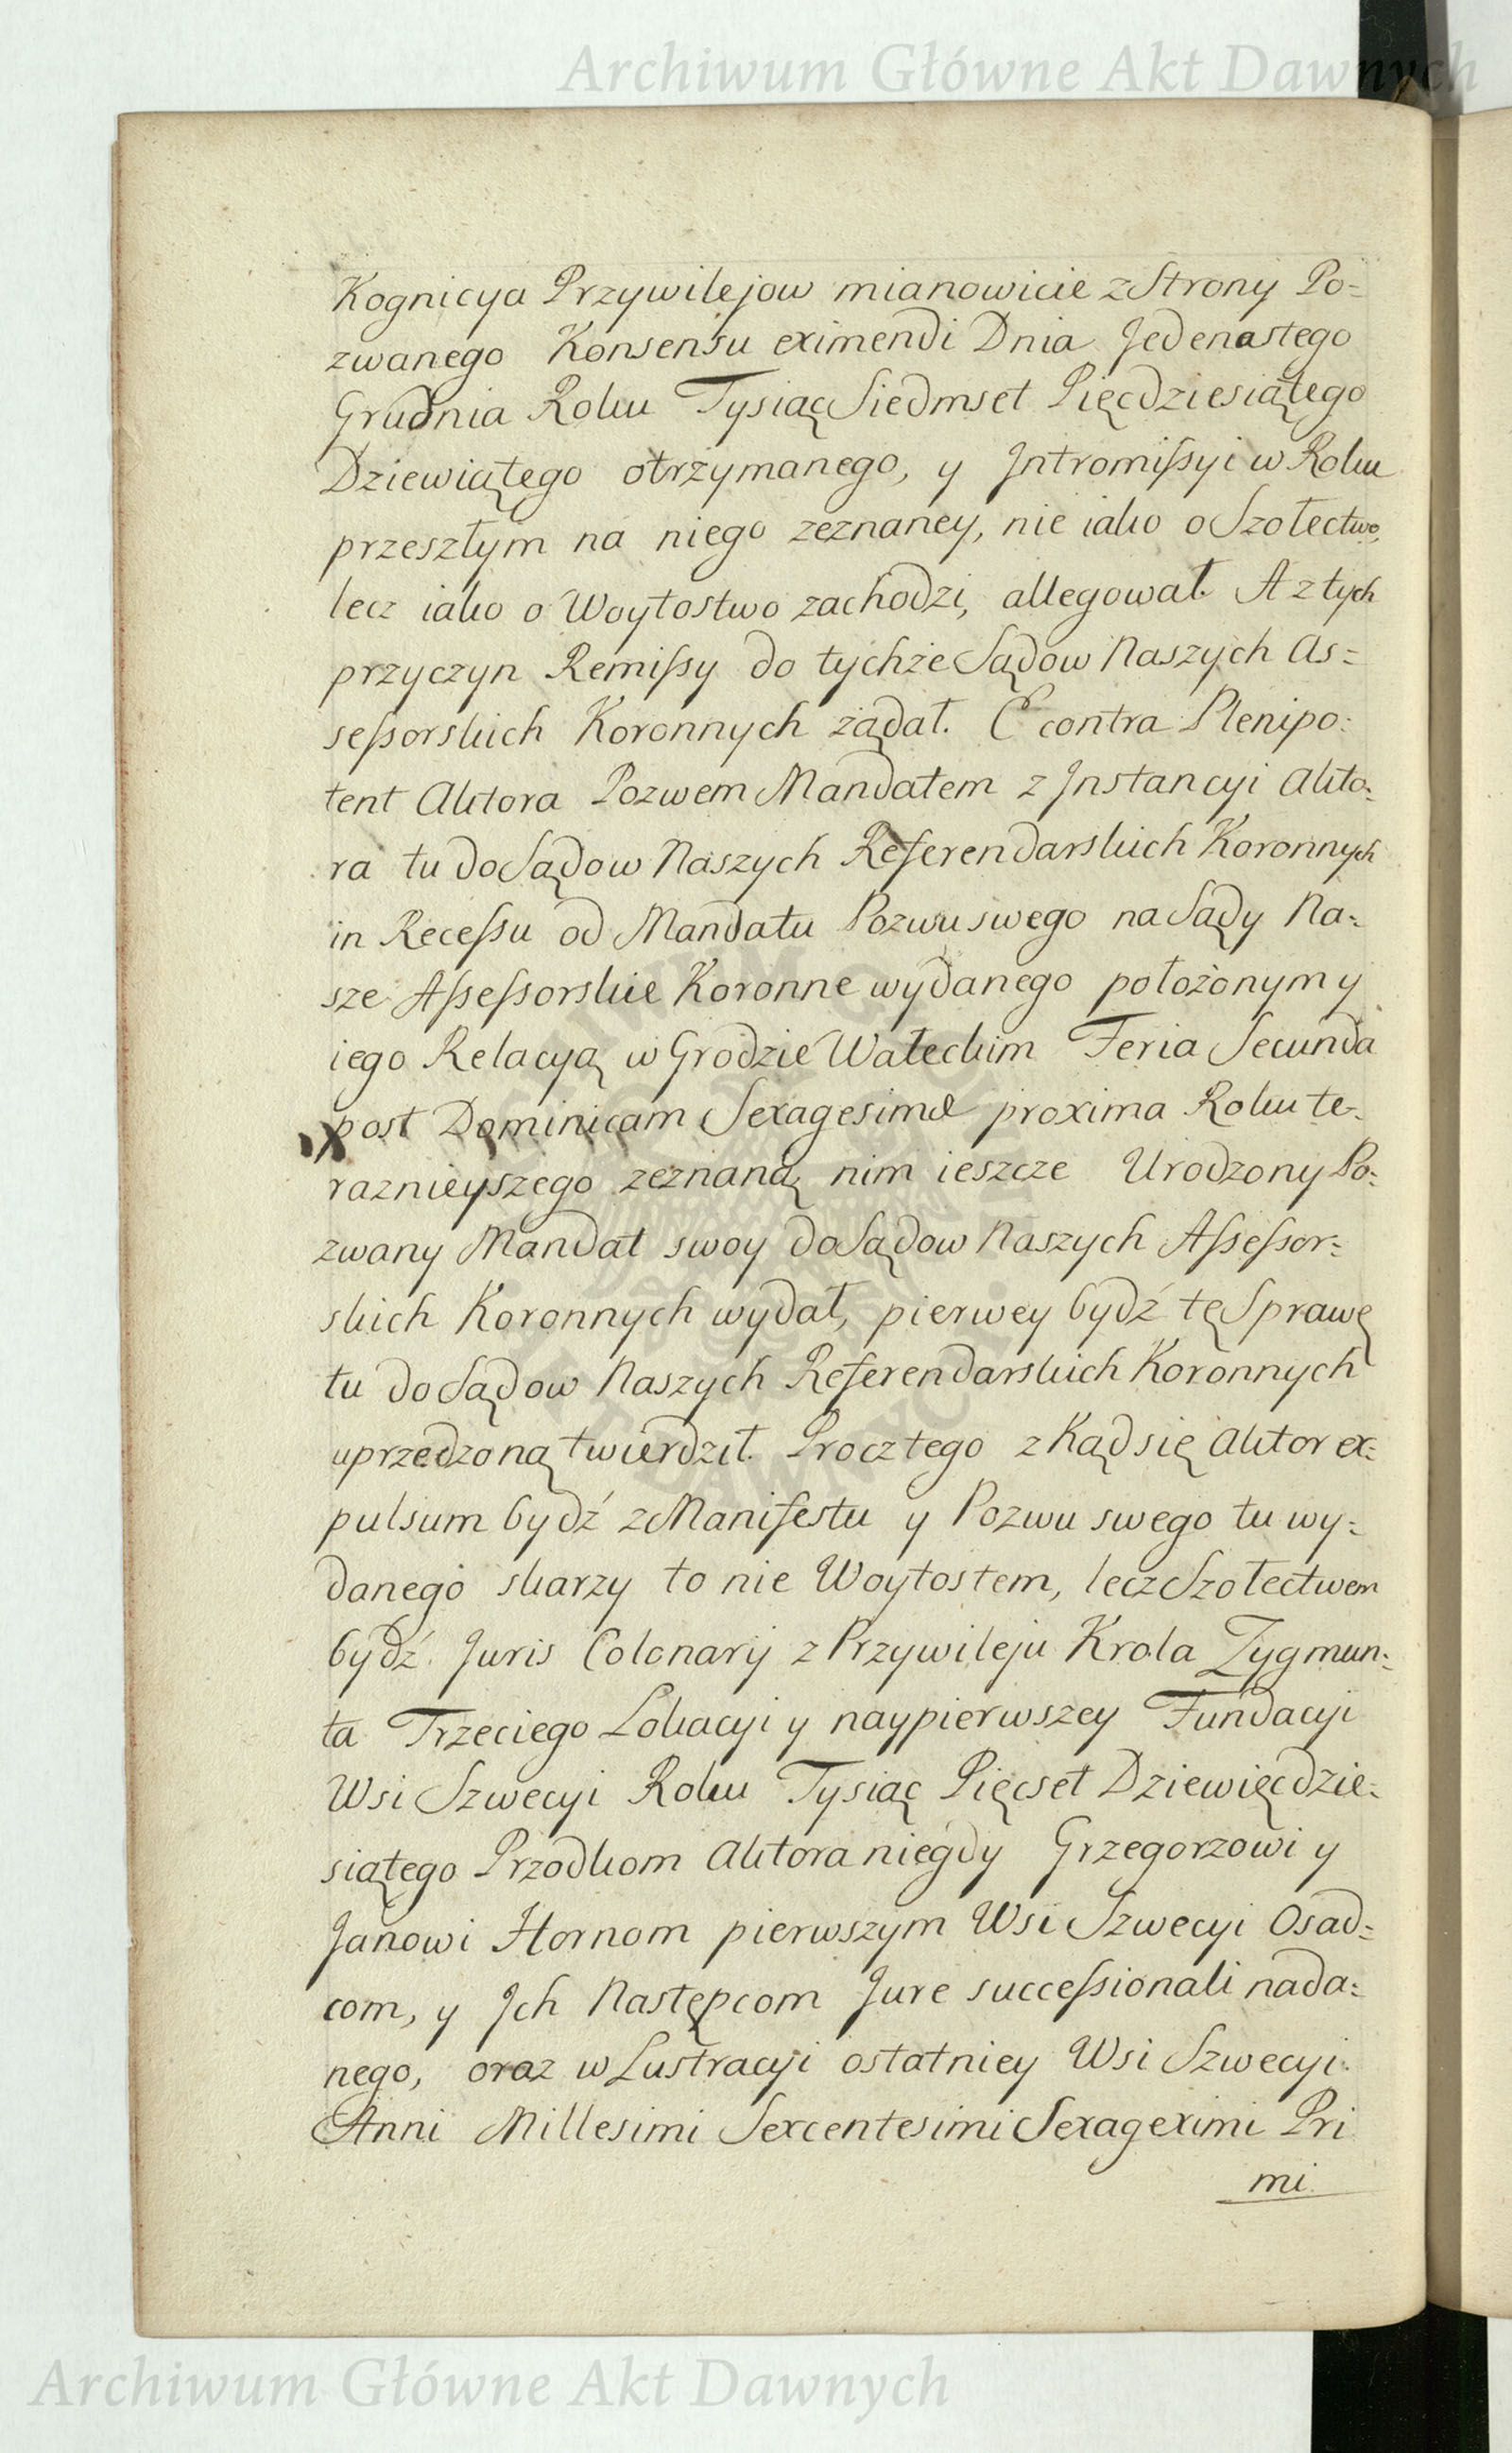 Archiwum Główne Akt Dawnych
Kognicya Przywilejow mianowicie z Strony Po=
zwanego Konsensu eximendi Dnia Jedenastego
Grudnia Roku Tysiąc Siedmset Pięcdziesiątego
Dziewiątego otrzymanego, y Intromissyi w Roku
przeszłym na niego zeznaney, nie iako o Szołectwo,
lecz iako o Woytostwo zachodzi, allegował. A z tych
przyczyn Remissy do tychże Sądow Naszych As=
sessorskich Koronnych żądał. E contra Plenipo=
tent Aktora Pozwem Mandatem z Instancyi Akto=
ra tu do Sądow Naszych Referendarskich Koronnych
in Recessu od Mandatu Pozwu swego na Sądy Na=
sze Assessorskie Koronne wydanego położonym y
iego Relacyą w Grodzie Wałeckim Feria Secunda
post Dominicam Sexagesimæ proxima Roku te=
raznieyszego zeznaną nim ieszcze Urodzony Po=
zwany Mandat swoy do Sądow Naszych Assessor=
skich Koronnych wydał, pierwey bydź tę Sprawę
tu do Sądow Naszych Referendarskich Koronnych
uprzedzoną twierdził. Procz tego z kąd się Aktor ex=
pulsum bydź z Manifestu y Pozwu swego tu wy=
danego skarzy to nie Woytostem, lecz Szołectwem
bydź Juris Colonarij z Przywileju Krola Zygmun=
ta Trzeciego Lokacyi y naypierwszey Fundacyi
Wsi Szwecyi Roku Tysiąc Pięcset Dziewięcdzie=
siątego Przodkom Aktora niegdy Grzegorzowi y
Janowi Hornom pierwszym Wsi Szwecyi Osad=
com, y Ich Następcom Jure successionali nada=
nego, oraz w Lustracyi ostatniey Wsi Szwecyi
Anni Millesimi Sexcentesimi Sexageximi Pri
mi
Archiwum Główne Akt Dawnych